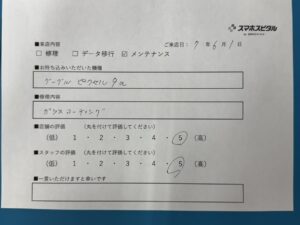 スマホスピタル
■来店内容
ご来店日: 7 年 6 月 1 日
□ 修理 □ データ移行 ☑ メンテナンス
■お持ち込みいただいた機種
グーグル ピクセル 9a
■修理内容
ガラスコーティング
■店舗の評価 (丸を付けて評価してください)
(低) 1 ・ 2 ・ 3 ・ 4 ・ 5 (高)
■スタッフの評価 (丸を付けて評価してください)
(低) 1 ・ 2 ・ 3 ・ 4 ・ 5 (高)
■一言いただけますと幸いです